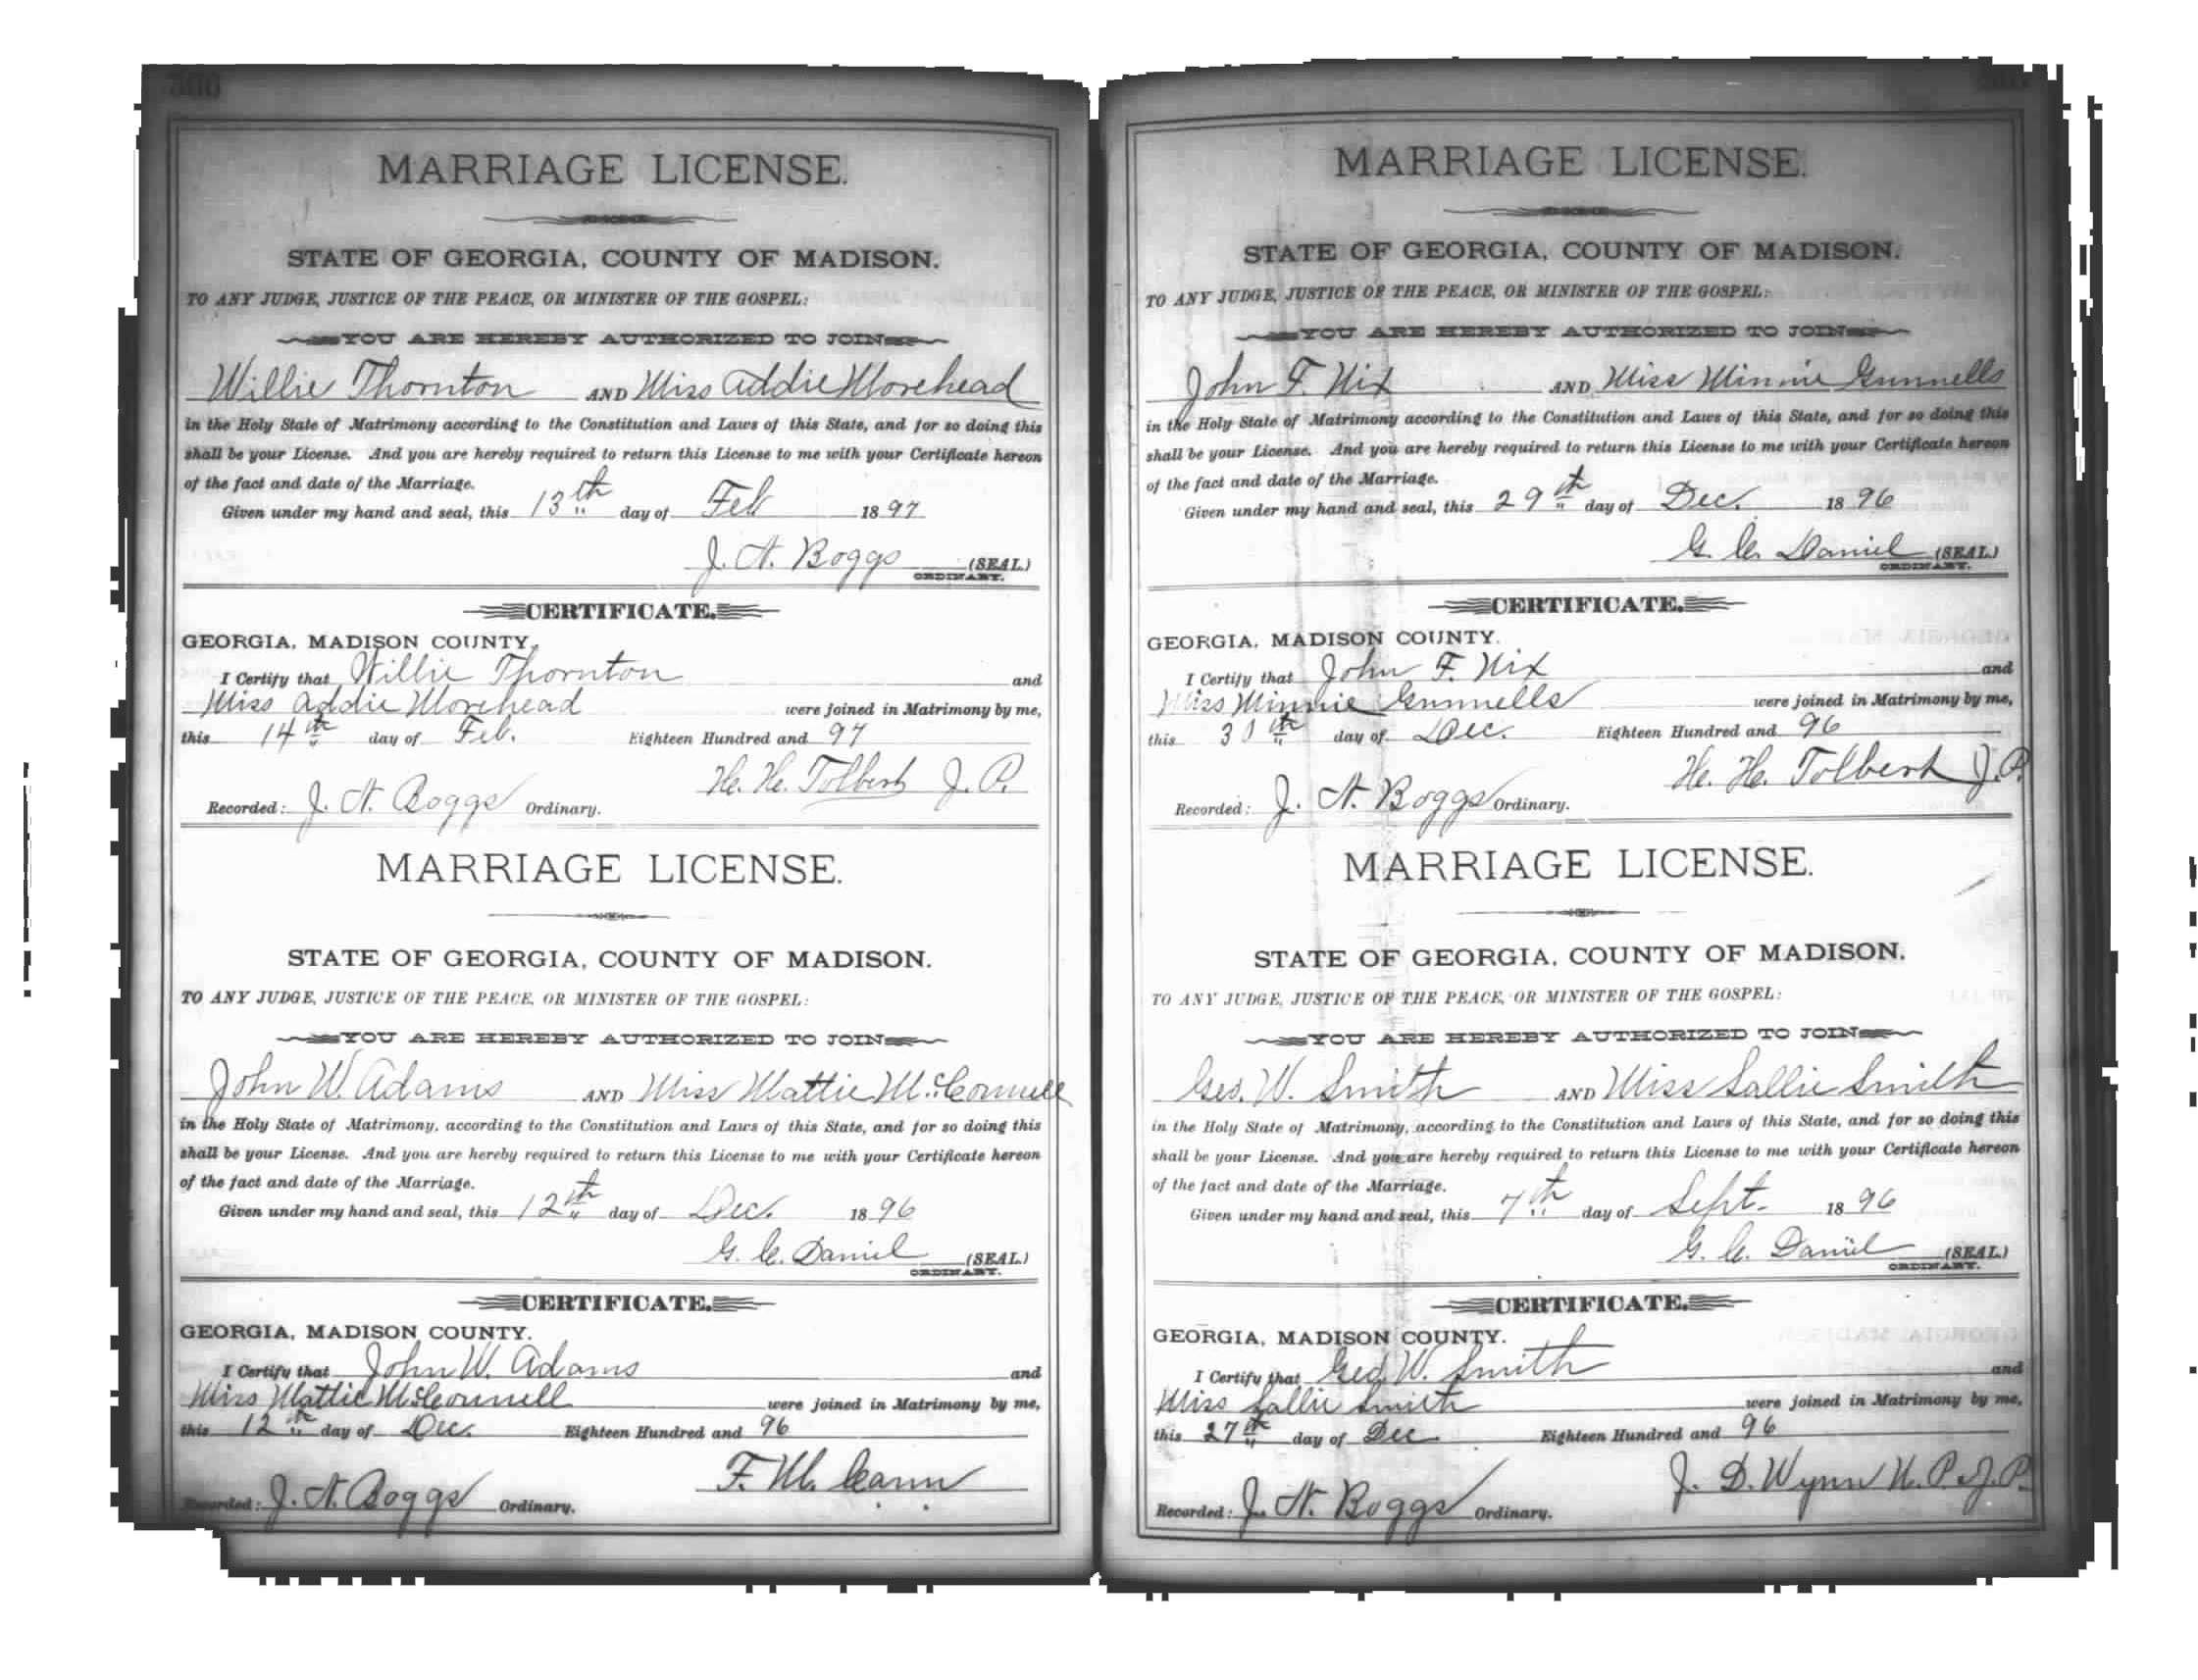 MARRIAGE LICENSE.
STATE OF GEORGIA, COUNTY OF MADISON.
TO ANY JUDGE, JUSTICE OF THE PEACE, OR MINISTER OF THE GOSPEL:
YOU ARE HEREBY AUTHORIZED TO JOIN
Willie Thornton AND Miss Addie Morehead
in the Holy State of Matrimony according to the Constitution and Laws of this State, and for so doing this
shall be your License. And you are hereby required to return this License to me with your Certificate hereon
of the fact and date of the Marriage.
Given under my hand and seal, this 13th day of Feb 1897
J. N. Boggs (SEAL)
ORDINARY.
CERTIFICATE.
GEORGIA, MADISON COUNTY.
I Certify that Willie Thornton and
Miss Addie Morehead were joined in Matrimony by me,
this 14th day of Feb. Eighteen Hundred and 97
H. H. Tolbert J. P.
Recorded: J. N. Boggs Ordinary.
MARRIAGE LICENSE.
STATE OF GEORGIA, COUNTY OF MADISON.
TO ANY JUDGE, JUSTICE OF THE PEACE, OR MINISTER OF THE GOSPEL:
YOU ARE HEREBY AUTHORIZED TO JOIN
John W. Adams AND Miss Mattie McConnell
in the Holy State of Matrimony, according to the Constitution and Laws of this State, and for so doing this
shall be your License. And you are hereby required to return this License to me with your Certificate hereon
of the fact and date of the Marriage.
Given under my hand and seal, this 12th day of Dec. 1896
G. C. Daniel (SEAL)
ORDINARY.
CERTIFICATE.
GEORGIA, MADISON COUNTY.
I Certify that John W. Adams and
Miss Mattie McConnell were joined in Matrimony by me,
this 12th day of Dec. Eighteen Hundred and 96
F. M. Cann
Recorded: J. N. Boggs Ordinary.
MARRIAGE LICENSE.
STATE OF GEORGIA, COUNTY OF MADISON.
TO ANY JUDGE, JUSTICE OF THE PEACE, OR MINISTER OF THE GOSPEL:
YOU ARE HEREBY AUTHORIZED TO JOIN
John F. Nix AND Miss Minnie Gunnells
in the Holy State of Matrimony according to the Constitution and Laws of this State, and for so doing this
shall be your License. And you are hereby required to return this License to me with your Certificate hereon
of the fact and date of the Marriage.
Given under my hand and seal, this 29th day of Dec. 1896
G. C. Daniel (SEAL)
ORDINARY.
CERTIFICATE.
GEORGIA, MADISON COUNTY.
I Certify that John F. Nix and
Miss Minnie Gunnells were joined in Matrimony by me,
this 30th day of Dec. Eighteen Hundred and 96
H. H. Tolbert J.P.
Recorded: J. N. Boggs Ordinary.
MARRIAGE LICENSE.
STATE OF GEORGIA, COUNTY OF MADISON.
TO ANY JUDGE, JUSTICE OF THE PEACE, OR MINISTER OF THE GOSPEL:
YOU ARE HEREBY AUTHORIZED TO JOIN
Geo. W. Smith AND Miss Sallie Smith
in the Holy State of Matrimony, according to the Constitution and Laws of this State, and for so doing this
shall be your License. And you are hereby required to return this License to me with your Certificate hereon
of the fact and date of the Marriage.
Given under my hand and seal, this 7th day of Sept. 1896
G. C. Daniel (SEAL)
ORDINARY.
CERTIFICATE.
GEORGIA, MADISON COUNTY.
I Certify that Geo. W. Smith and
Miss Sallie Smith were joined in Matrimony by me,
this 27th day of Dec Eighteen Hundred and 96
J. D. Wynn N. P. & J. P.
Recorded: J. N. Boggs Ordinary.